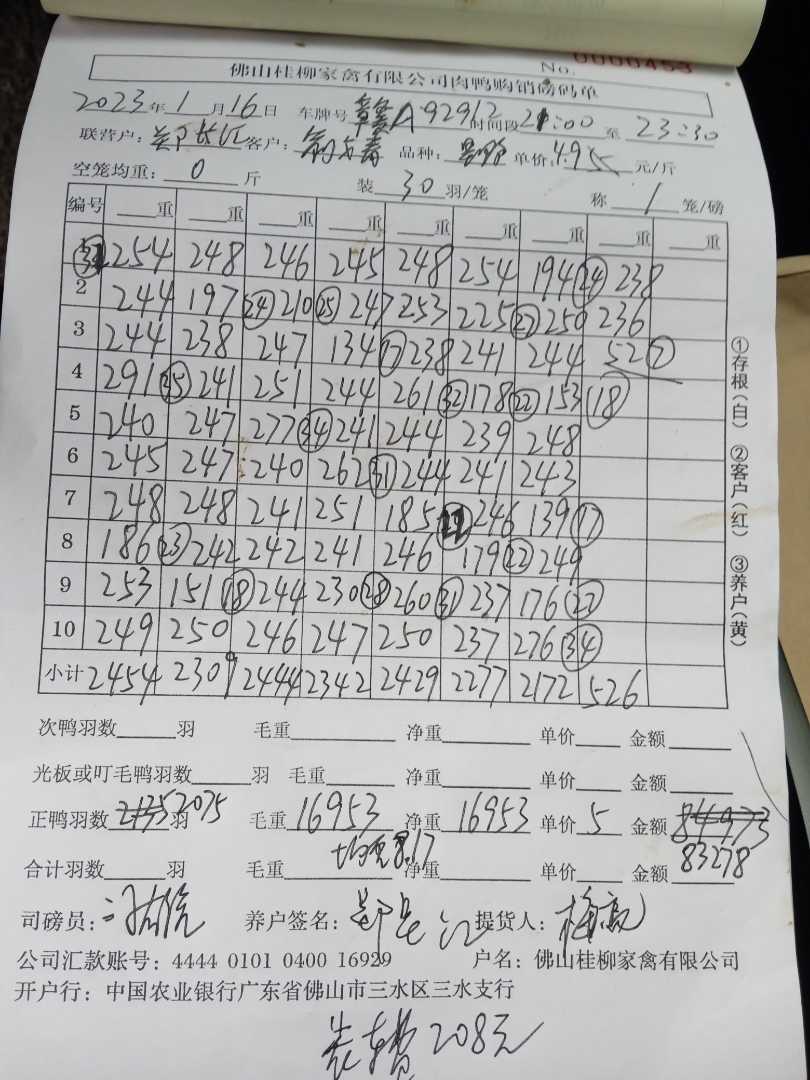 No. 0000453
佛山桂柳家禽有限公司肉鸭购销磅码单
2023年1月16日 车牌号 赣A92912 时间段 21:00 至 23:30
联营户: 郑长江 客户: 品种: 单价: 4.95 元/斤
空笼均重: 0 斤 装 30 羽/笼 称 1 笼/磅
编号 重 重 重 重 重 重 重 重 重
1 254 248 246 245 248 254 194 24 238
2 244 197 24 210 25 247 253 225 27 250 236
3 244 238 247 134 17 238 241 244 52 7
4 291 35 241 251 244 261 32 178 22 153 18
5 240 247 277 34 241 244 239 248
6 245 247 240 262 31 244 241 243
7 248 248 241 251 185 246 139 17
8 186 23 242 242 241 246 179 22 249
9 253 151 18 244 230 28 260 31 237 176 22
10 249 250 246 247 250 237 276 34
小计 2454 2309 2444 2342 2429 2277 2172 526
①存根(白) ②客户(红) ③养户(黄)
次鸭羽数 羽 毛重 净重 单价 金额
光板或叮毛鸭羽数 羽 毛重 净重 单价 金额
正鸭羽数 2135 2075 羽 毛重 16953 净重 16953 单价 5 金额 84973
均重8.17 83278
合计羽数 羽 毛重 净重 单价 金额
司磅员: 养户签名: 郑长江 提货人:
公司汇款账号: 4444 0101 0400 16929 户名: 佛山桂柳家禽有限公司
开户行: 中国农业银行广东省佛山市三水区三水支行
装车费208元